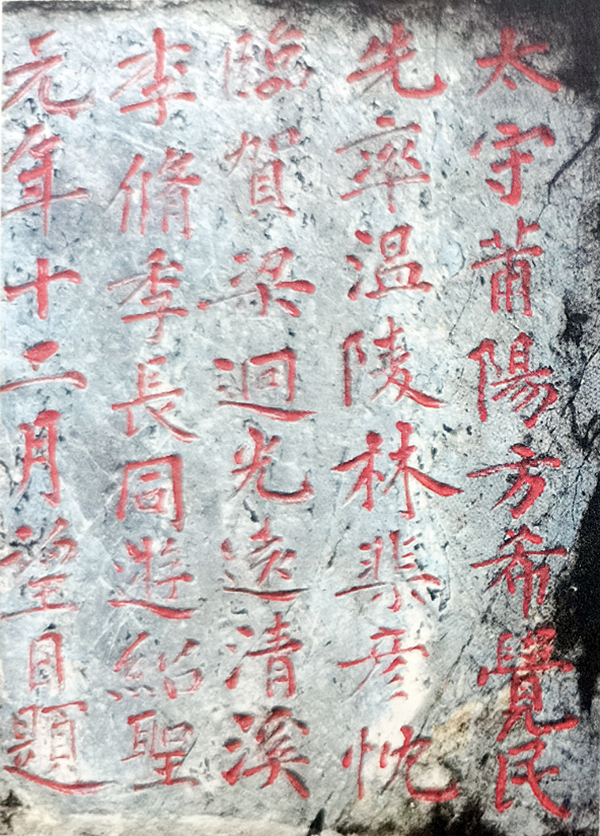 太守莆陽方希覺民
先率温陵林棐彦忱
臨賀梁迥光遠清溪
李脩季長同遊紹聖
元年十二月望日題